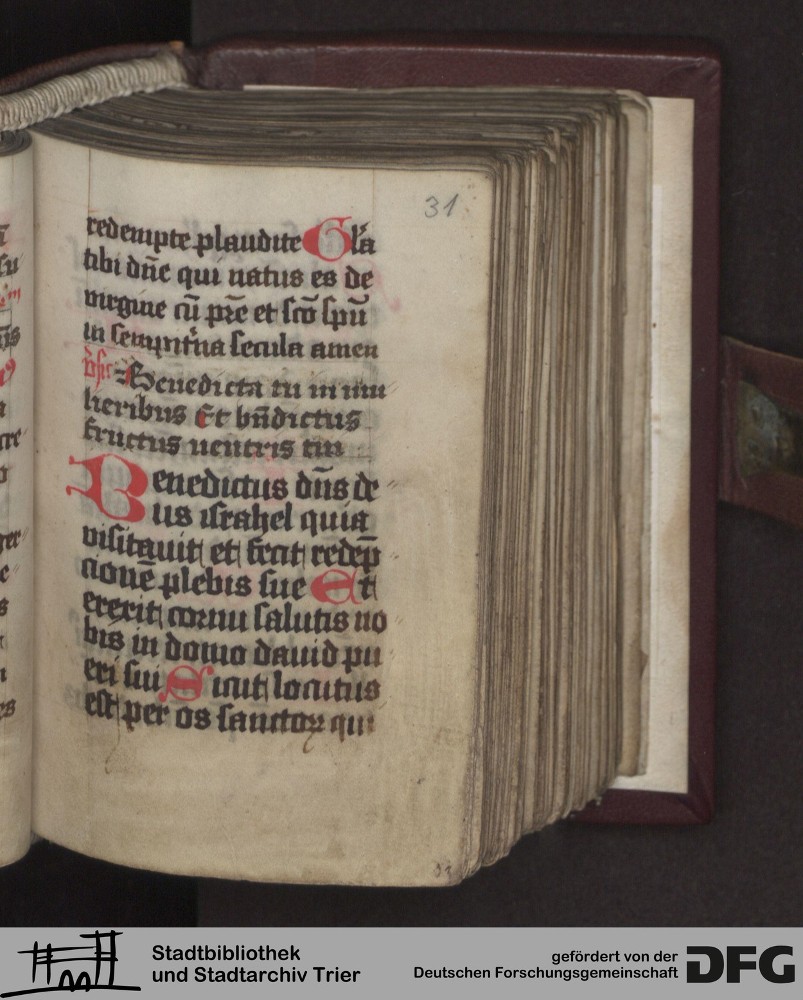 31
redempte plaudite Gl'a
tibi dn̄e qui natus es de
virgine cū pr̄e et scō spū
in sempit'na secula amen
Benedicta tu in mu
lieribus Et bn̄dictus
fructus uentris tui
Benedictus dn̄s de
us israhel quia
visitauit et fecit redēp
cionē plebis sue Et
erexit cornu salutis no
bis in domo dauid pu
eri sui Sicut locutus
est per os sanctoꝝ qui
Stadtbibliothek
und Stadtarchiv Trier
gefördert von der
Deutschen Forschungsgemeinschaft
DFG